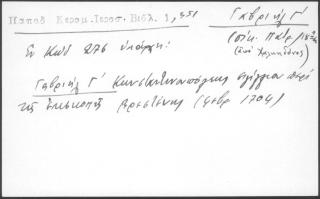 Παπαδ Κεραμ.Ιεροσ. Βιβλ. 1, 351
Γαβριήλ Γ'
(οἰκ. Πατρ.
(ἀπὸ Χαλκηδόνος)
Ἐν Κωδ 276 ὑπάρχει:
Γαβριήλ Γ' Κωνσταντινουπόλεως περὶ
τῆς Ἐπισκοπῆς (φεβρ 1704)